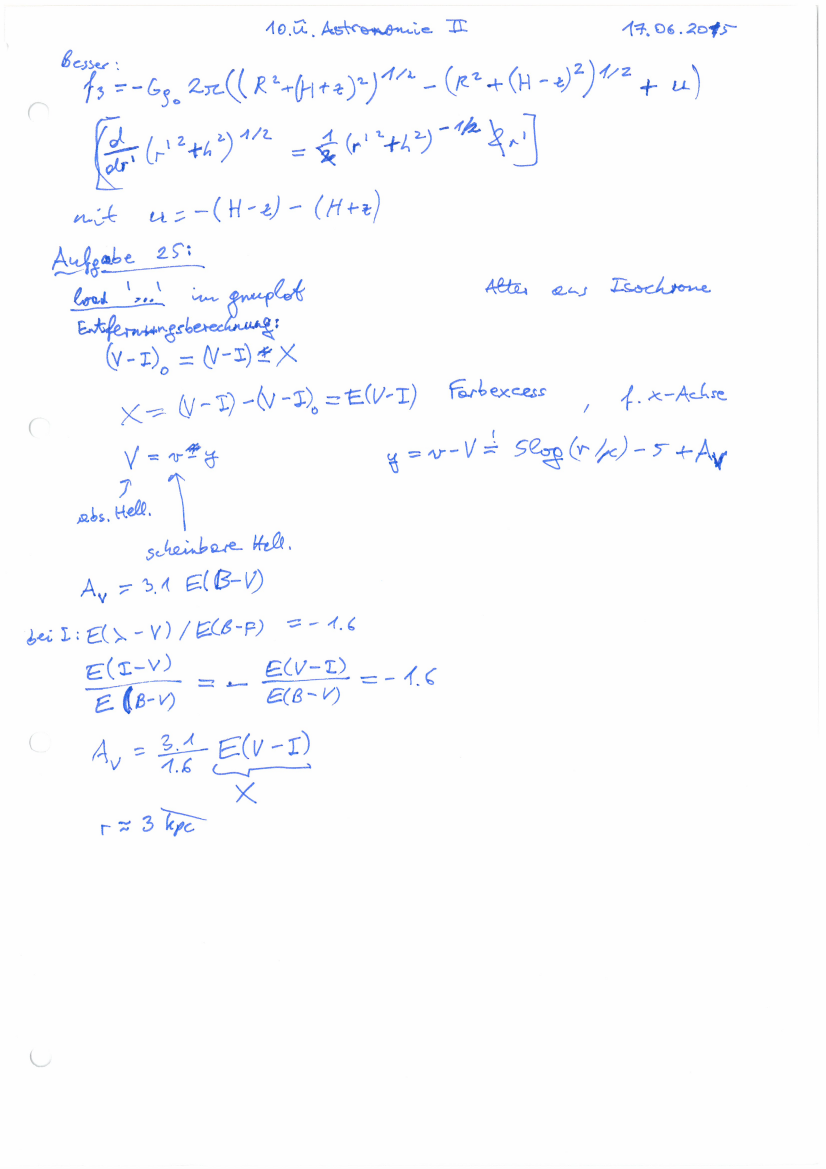 10. Ü. Astronomie II 17.06.2015
Besser:
f₃ = -Gρ₀ 2π((R²+(H+z)²)^1/2 - (R²+(H-z)²)^1/2 + u)
[d/dr' (r'²+h²)^1/2 = 1/2 (r'²+h²)^-1/2 2r']
mit u = -(H-z) - (H+z)
Aufgabe 25:
load '...' im gnuplot Alter aus Isochrone
Entfernungsberechnung:
(V-I)₀ = (V-I) - X
X = (V-I) - (V-I)₀ = E(V-I) Farbexcess , f. x-Achse
V = v - y y = v - V != 5log(r/pc) - 5 + A_V
abs. Hell.
scheinbare Hell.
A_V = 3.1 E(B-V)
bei I: E(λ-V)/E(B-F) = -1.6
E(I-V)/E(B-V) = - E(V-I)/E(B-V) = -1.6
A_V = 3.1/1.6 E(V-I)
X
r ≈ 3 kpc